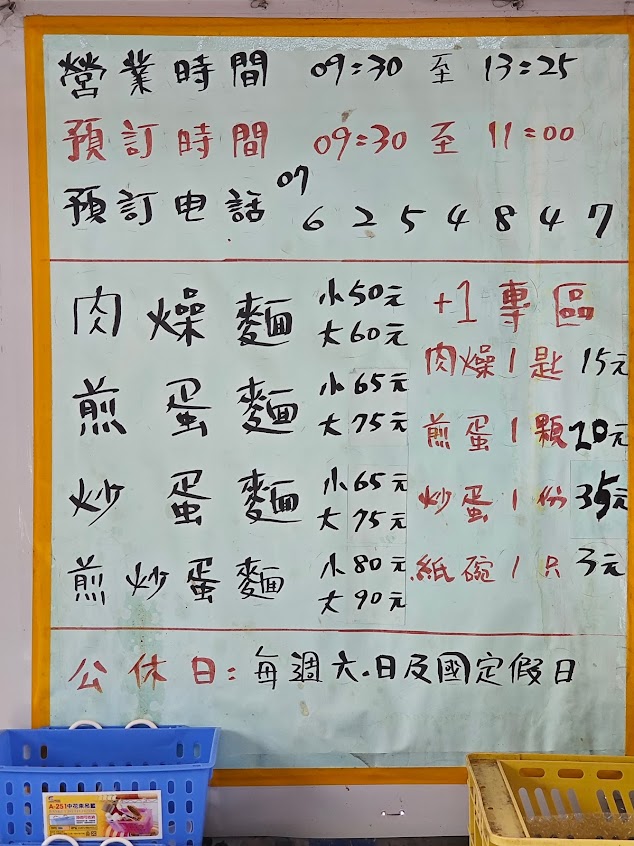 營業時間 09:30 至 13:25
預訂時間 09:30 至 11:00
預訂电話 07 6254847
肉燥麵 小50元
大60元
煎蛋麵 小65元
大75元
炒蛋麵 小65元
大75元
煎炒蛋麵 小80元
大90元
+1專區
肉燥1匙 15元
煎蛋1顆 20元
炒蛋1份 35元
紙碗1只 3元
公休日: 每週六.日及國定假日
A-251中花東吊籃